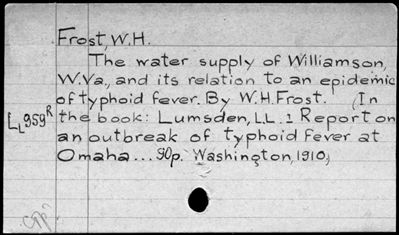 Frost, W.H.
The water supply of Williamson,
W.Va., and its relation to an epidemic
of typhoid fever. By W.H. Frost. (In
LL959R the book: Lumsden, L.L. : Report on
an outbreak of typhoid fever at
Omaha... 90p. Washington, 1910)